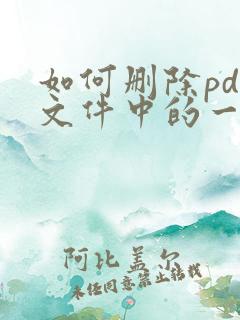 如何删除pd
文件中的一
阿比盖尔
未经同意禁止转载